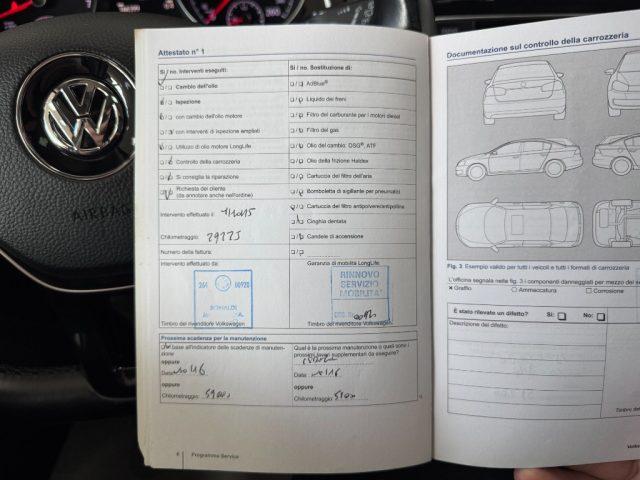 AIRBAG
Attestato n° 1
Si / no. Interventi eseguiti:
Cambio dell'olio
Ispezione
con cambio dell'olio motore
con interventi di ispezione ampliati
Utilizzo di olio motore LongLife
Controllo della carrozzeria
Si consiglia la riparazione
Richiesta del cliente
(da annotare anche nell'ordine)
Intervento effettuato il:
Chilometraggio: 29225
Numero della fattura:
Intervento effettuato da:
261 00920
Timbro del rivenditore Volkswagen
Si / no. Sostituzione di:
AdBlue®
Liquido dei freni
Filtro del carburante per i motori diesel
Filtro del gas
Olio del cambio: DSG®, ATF
Olio della frizione Haldex
Cartuccia del filtro dell'aria
Bomboletta di sigillante per pneumatici
Cartuccia del filtro antipolvere/antipolline
Cinghia dentata
Candele di accensione
Garanzia di mobilità LongLife:
RINNOVO
SERVIZIO
MOBILITA'
Timbro del rivenditore Volkswagen
Prossima scadenza per la manutenzione
In base all'indicatore delle scadenze di manuten-
zione
oppure
Data:
oppure
Chilometraggio:
Qual è la prossima manutenzione o quali sono i
prossimi lavori supplementari da eseguire?
Data:
oppure
Chilometraggio:
6 Programma Service
Documentazione sul controllo della carrozzeria
Fig. 3 Esempio valido per tutti i veicoli e tutti i formati di carrozzeria
L'officina segnala nelle fig. 3 i componenti danneggiati per mezzo dei
× Graffio Ammaccatura Corrosione
È stato rilevato un difetto? Sì: No:
Descrizione del difetto:
Timbro de